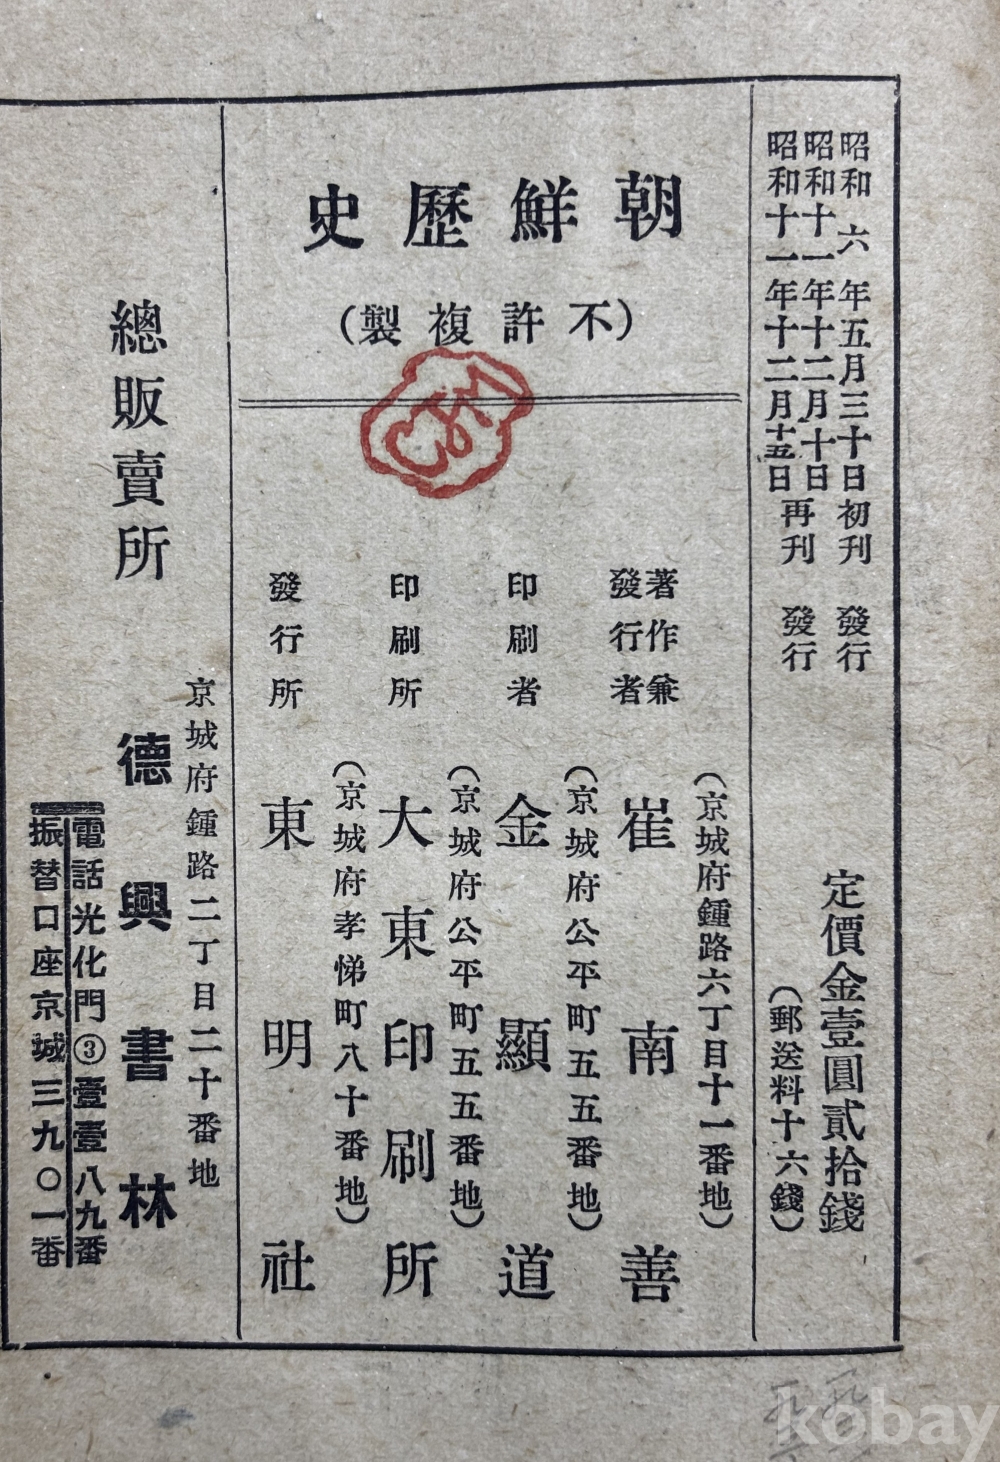 昭和六年五月三十日初刊發行
昭和十一年十二月十日
昭和十一年十二月十五日再刊發行
定價金壹圓貳拾錢
(郵送料十六錢)
朝鮮歷史
(不許複製)
著作兼
發行者
(京城府鍾路六丁目十一番地)
崔南善
印刷者
(京城府公平町五五番地)
金顯道
印刷所
(京城府公平町五五番地)
大東印刷所
發行所
(京城府孝悌町八十番地)
東明社
總販賣所
京城府鍾路二丁目二十番地
德興書林
電話光化門③壹壹八九番
振替口座京城三九〇一番
kobay